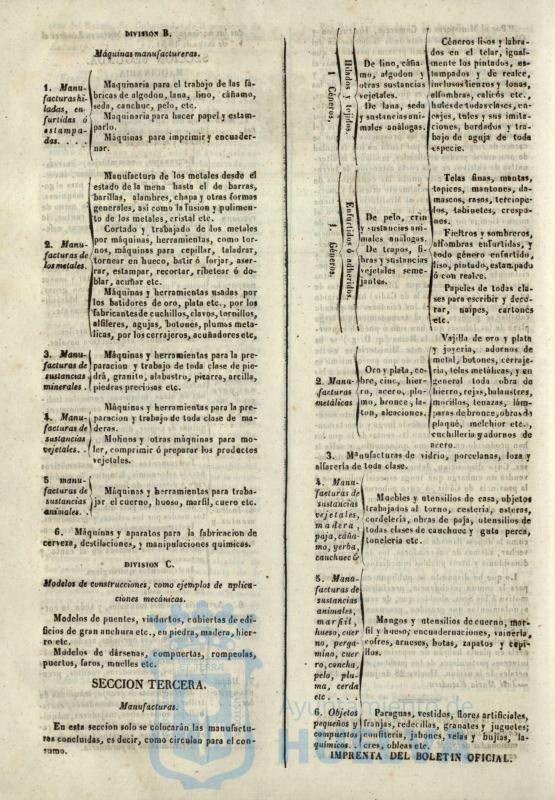 DIVISION B.
Máquinas manufactureras.
1. Manu-
facturas hi-
ladas, en-
furtidas ó
estampa-
das. . . .
Maquinaria para el trabajo de las fá-
bricas de algodon, lana, lino, cáñamo,
seda, canchuc, pelo, etc.
Maquinaria para hacer papel y estam-
parlo.
Máquinas para imprimir y encuader-
nar.
2. Manu-
facturas de
los metales.
Manufactura de los metales desde el
estado de la mena hasta el de barras,
barillas, alambres, chapa y otras formas
generales, asi como la fusion y pulimen-
to de los metales, cristal etc.
Cortado y trabajado de los metales
por máquinas, herramientas, como tor-
nos, máquinas para cepillar, taladrar,
tornear en hueco, batir ó forjar, aser-
rar, estampar, recortar, ribetear ó do-
blar, acuñar etc.
Máquinas y herramientas usadas por
los batidores de oro, plata etc., por los
fabricantes de cuchillos, clavos, tornillos,
alfileres, agujas, botones, plumas meta-
licas, por los cerrajeros, acuñadores etc,
3. Manu-
facturas de
sustancias
minerales .
Máquinas y herramientas para la pre-
paracion y trabajo de toda clase de pie-
drá, granito, alabastro, pizarra, arcilla,
piedras preciosas etc.
4. Manu-
facturas de
sustancias
vejetales. .
Máquinas y herramientas para la pre-
paracion y trabajo de toda clase de ma-
deras.
Molinos y otras máquinas para mo-
ler, comprimir ó preparar los productos
vejetales.
5 manu-
facturas de
sustancias
animales. .
Máquinas y herramientas para traba-
jar el cuerno, hueso, marfil, cuero etc.
6. Máquinas y aparatos para la fabricacion de
cerveza, destilaciones, y manipulaciones quimicas.
DIVISION C.
Modelos de construcciones, como ejemplos de aplica-
ciones mecánicas.
Modelos de puentes, viaductos, cubiertas de edi-
ficios de gran anchura etc., en piedra, madera, hier-
ro etc.
Modelos de dársenas, compuertas, rompeolas,
puertos, faros, muelles etc.
SECCION TERCERA.
Manufacturas.
En esta seccion solo se colocarán las manufactu-
ras concluidas, es decir, como circulan para el con-
sumo.
1 Géneros.
Hilados y tejidos.
De lino, cáña-
mo, algodon y
otras sustancias
vejetales.
De lana, seda
y sustancias ani-
males análogas.
Géneros lisos y labra-
dos en el telar, igual-
mente los pintados, es-
tampados y de realce,
inclusos lienzos y lonas,
alfombras, calicós etc.,
hules de todas clases, en-
cajes, tules y sus imita-
ciones, bordados y tra-
bajo de aguja de toda
especie.
Géneros.
Enfurtidos ó adheridos.
De pelo, crin
y sustancias ani-
males análogas.
De trapos, fi-
bras y sustancias
vejetales seme-
jantes.
Telas finas, mantas,
tapices, mantones, da-
mascos, rasos, terciope-
los, tabinetes, crespo-
nes.
Fieltros y sombreros,
alfombras enfurtidas, y
todo género enfurtido,
liso, pintado, estampado
ó con realce.
Papeles de todas cla-
ses para escribir y deco-
rar, naipes, cartones
etc.
2. Manu-
facturas
metálicas
Oro y plata, co-
bre, cinc, hier-
ro, acero, plo-
mo, bronce, la-
ton, aleaciones.
Vajilla de oro y plata
y joyeria, adornos de
metal, botones, cerraje-
ria, telas metálicas, y en
general todo obra de
hierro, rejas, balaustres,
morillos, tenazas, lám-
paras de bronce, obras de
plaqué, melchior etc.,
cuchilleria y adornos de
acero.
3. Manufacturas de vidrio, porcelanas, loza y
alfarería de toda clase.
4. Manu-
facturas de
sustancias
vejetales,
madera,
paja, cáña-
mo, yerba,
cauchuc &
Muebles y utensilios de casa, objetos
trabajados al torno, cesteria, esteras,
cordeleria, obras de paja, utensilios de
todas clases de cauchuc y guta perca,
toneleria etc.
5. Mana-
facturas de
sustancias
animales,
marfil,
hueso, cuer
no, perga-
mino, cuer
ro, concha,
pelo, plu-
ma, cerda
etc . . . .
Mangos y utensilios de cuerno, mar-
fil y hueso; encuadernaciones, vaineria,
cofres, arneses, botas, zapatos y cepi-
llos.
6. Objetos
pequeños y
compuestos
químicos. .
Paraguas, vestidos, flores artificiales,
franjas, redecillas, granates y juguetes;
confiteria, jabones, velas y bujias, la-
cres, obleas etc.
IMPRENTA DEL BOLETIN OFICIAL.
Ayuntamiento de